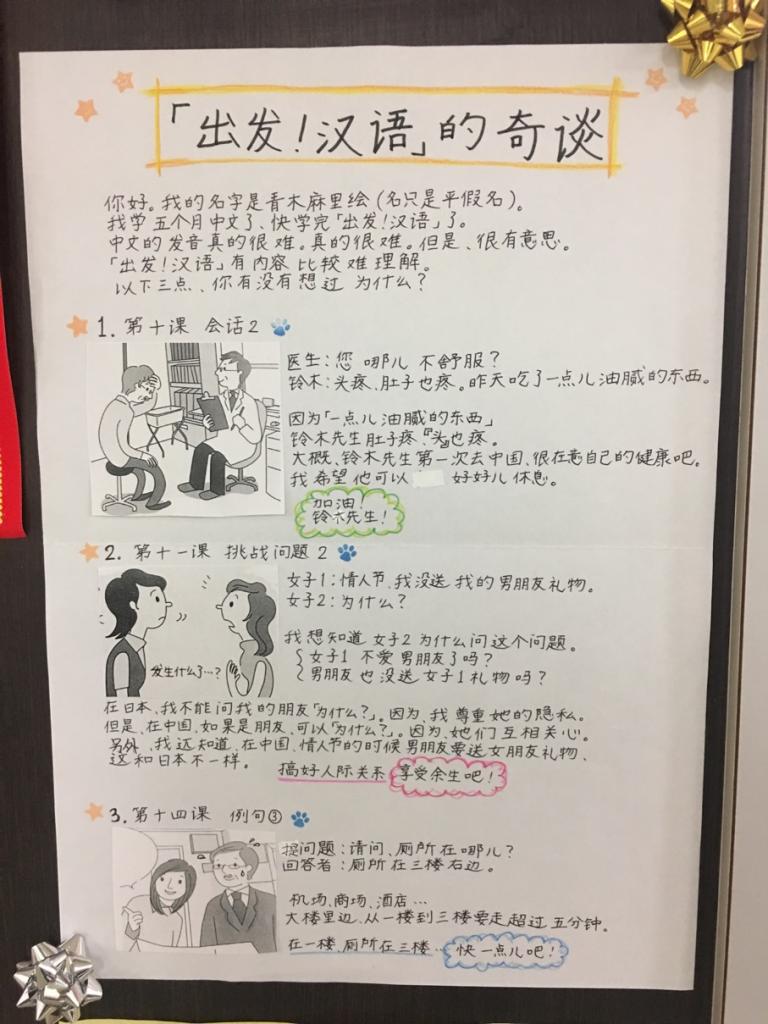 「出发！汉语」的奇谈
你好。我的名字是青木麻里绘（名只是平假名）。
我学五个月中文了、快学完「出发！汉语」了。
中文的发音真的很难。真的很难。但是、很有意思。
「出发！汉语」有内容比较难理解。
以下三点、你有没有想过为什么？
1. 第十课 会话2
医生：您哪儿不舒服？
铃木：头疼、肚子也疼。昨天吃了一点儿油腻的东西。
因为「一点儿油腻的东西」
铃木先生肚子疼『头』也疼。
大概、铃木先生第一次去中国、很在意自己的健康吧。
我希望他可以 好好儿休息。
加油！
铃木先生！
2. 第十一课 挑战问题2
女子1：情人节、我没送我的男朋友礼物。
女子2：为什么？
我想知道女子2为什么问这个问题。
女子1不爱男朋友了吗？
男朋友也没送女子1礼物吗？
发生什么了…？
在日本、我不能问我的朋友「为什么？」。因为、我尊重她的隐私。
但是、在中国、如果是朋友、可以「为什么？」。因为、她们互相关心。
另外、我这知道、在中国、情人节的时候男朋友要送女朋友礼物、
这和日本不一样。
搞好人际关系 享受余生吧！
3. 第十四课 例句③
提问题：请问、厕所在哪儿？
回答者：厕所在三楼右边。
机场、商场、酒店…
大楼里边、从一楼到三楼要走超过五分钟。
在一楼、厕所在三楼… 快一点儿吧！